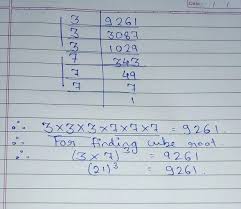 3 | 9261
3 | 3087
3 | 1029
7 | 343
7 | 49
7 | 7
1
∴ 3×3×3×7×7×7 = 9261.
∴ For finding cube root.
∴ (3×7)³ = 9261
(21)³ = 9261.